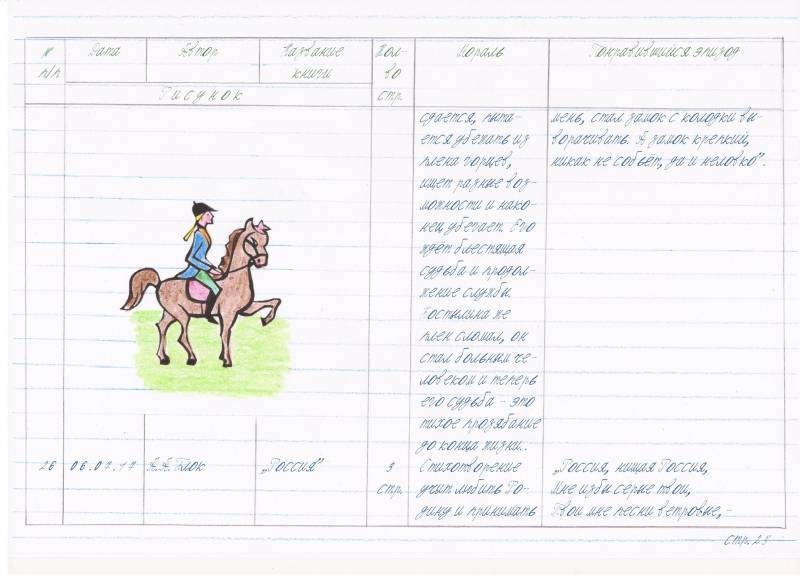 № п/п
Дата
Автор
Название
книги
Кол-
во
стр.
Мораль
Понравившийся эпизод
Рисунок
сдаётся, пыта-
ется убежать из
плена горцев,
ищет разные воз-
можности и нако-
нец убегает. Его
ждёт блестящая
судьба и продол-
жение службы.
Костылина же
плен сломал, он
стал больным че-
ловеком и теперь
его судьба - это
тихое прозябание
до конца жизни..
мень, стал замок с колодки вы-
ворачивать. А замок крепкий,
никак не собьёт, да и неловко".
26
06.07.17
А.А. Блок
„Россия"
3
стр.
Стихотворение
учит любить Ро-
дину и принимать
„Россия, нищая Россия,
Мне избы серые твои,
Твои мне песни ветровые, -
стр. 25